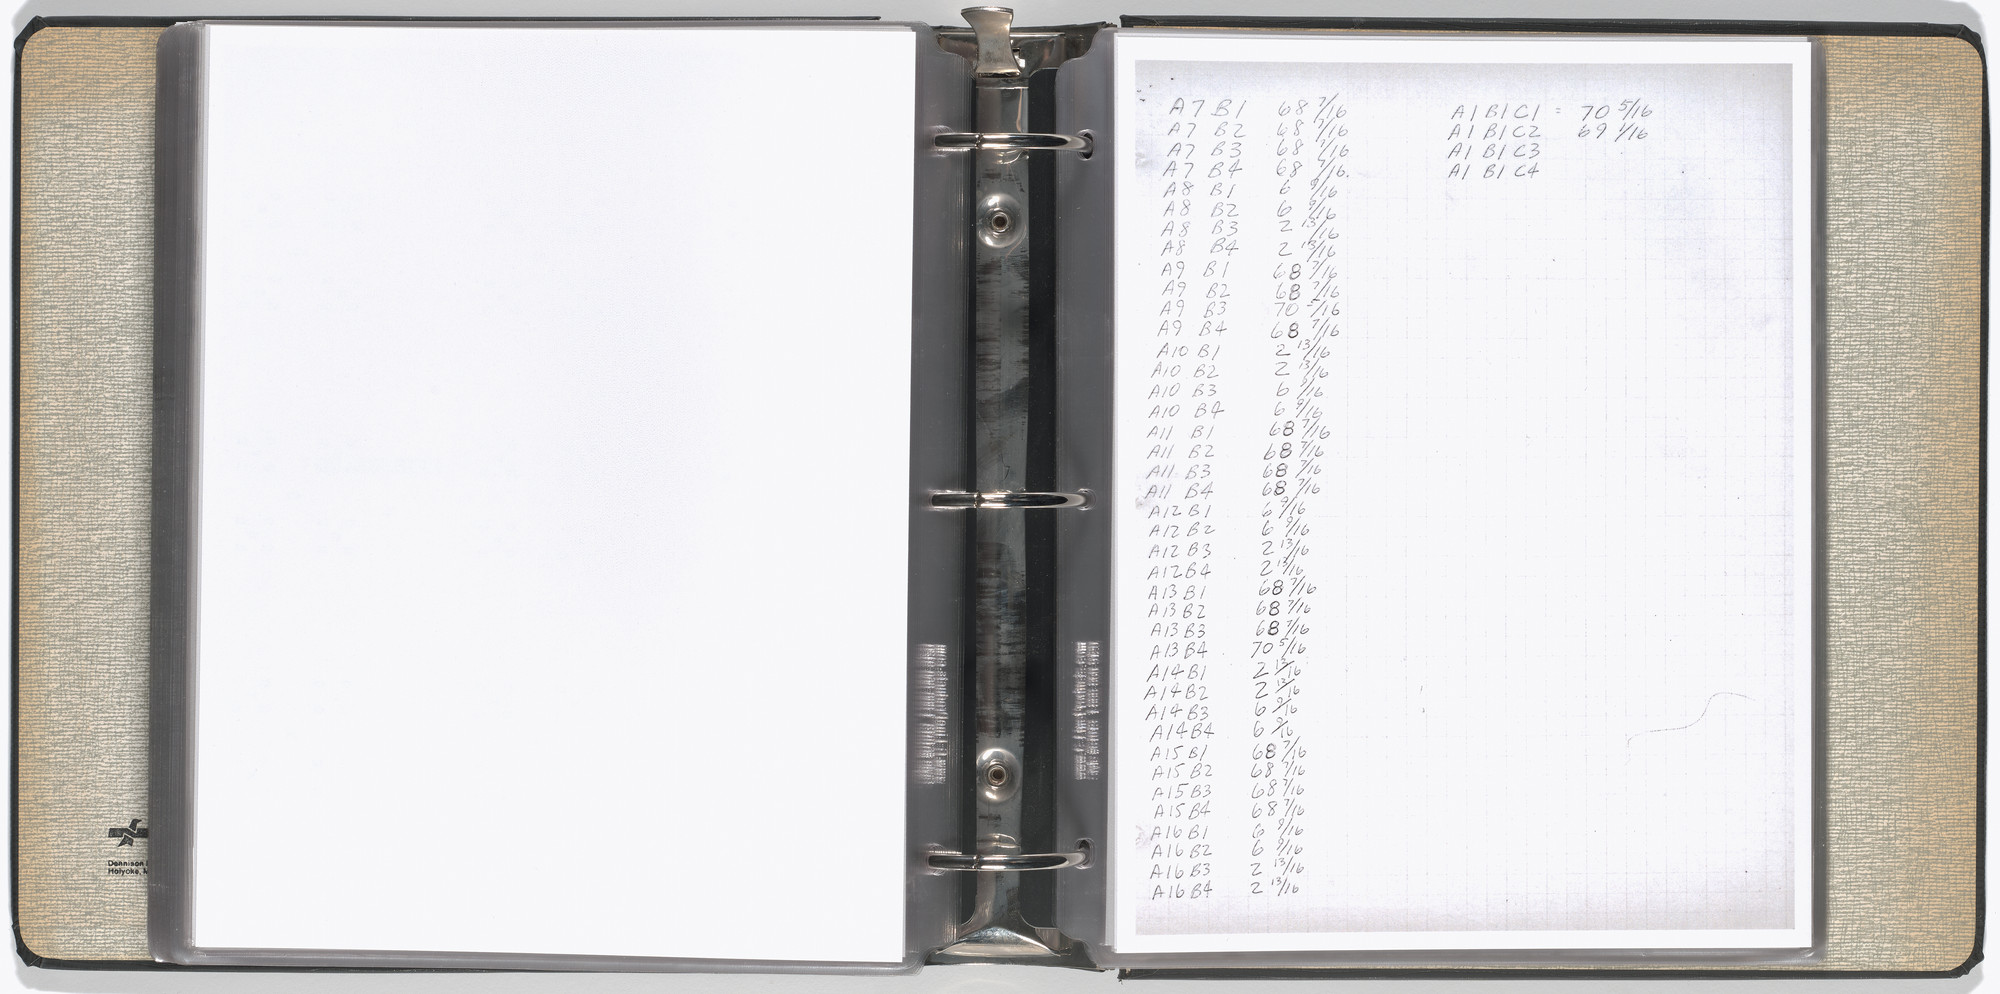 A7 B1 68 7/16
A7 B2 68 7/16
A7 B3 68 7/16
A7 B4 68 7/16.
A8 B1 6 9/16
A8 B2 6 9/16
A8 B3 2 13/16
A8 B4 2 13/16
A9 B1 68 7/16
A9 B2 68 7/16
A9 B3 70 5/16
A9 B4 68 7/16
A10 B1 2 13/16
A10 B2 2 13/16
A10 B3 6 9/16
A10 B4 6 9/16
A11 B1 68 7/16
A11 B2 68 7/16
A11 B3 68 7/16
A11 B4 68 7/16
A12 B1 6 9/16
A12 B2 6 9/16
A12 B3 2 13/16
A12 B4 2 13/16
A13 B1 68 7/16
A13 B2 68 7/16
A13 B3 68 7/16
A13 B4 70 5/16
A14 B1 2 13/16
A14 B2 2 13/16
A14 B3 6 9/16
A14 B4 6 9/16
A15 B1 68 7/16
A15 B2 68 7/16
A15 B3 68 7/16
A15 B4 68 7/16
A16 B1 6 9/16
A16 B2 6 9/16
A16 B3 2 13/16
A16 B4 2 13/16
A1 B1 C1 = 70 5/16
A1 B1 C2 69 1/16
A1 B1 C3
A1 B1 C4
Dennison
Holyoke,